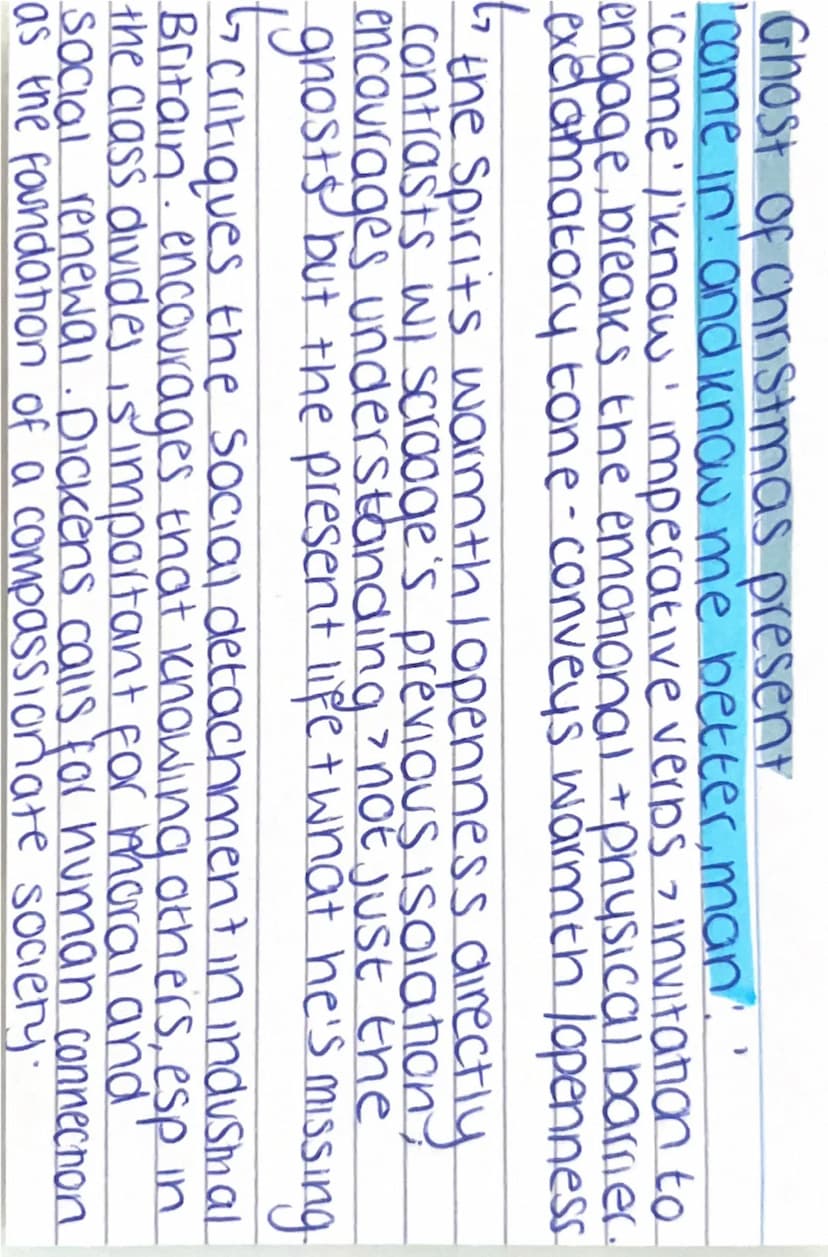 Ghost of christmas present
'come in! and know me better, man!'
'come' / 'know' imperative verbs > invitation to
engage, breaks the emotional + physical barrier.
exclamatory tone - conveys warmth / openness
↳ the spirits warmth / openness directly
contrasts w/ scrooge's previous isolation;
encourages understanding > not just the
ghosts but the present life + what he's missing
↳ critiques the social detachment in industrial
Britain. encourages that knowing others, esp in
the class divides is important for moral and
social renewal. Dickens calls for human connection
as the foundation of a compassionate society.